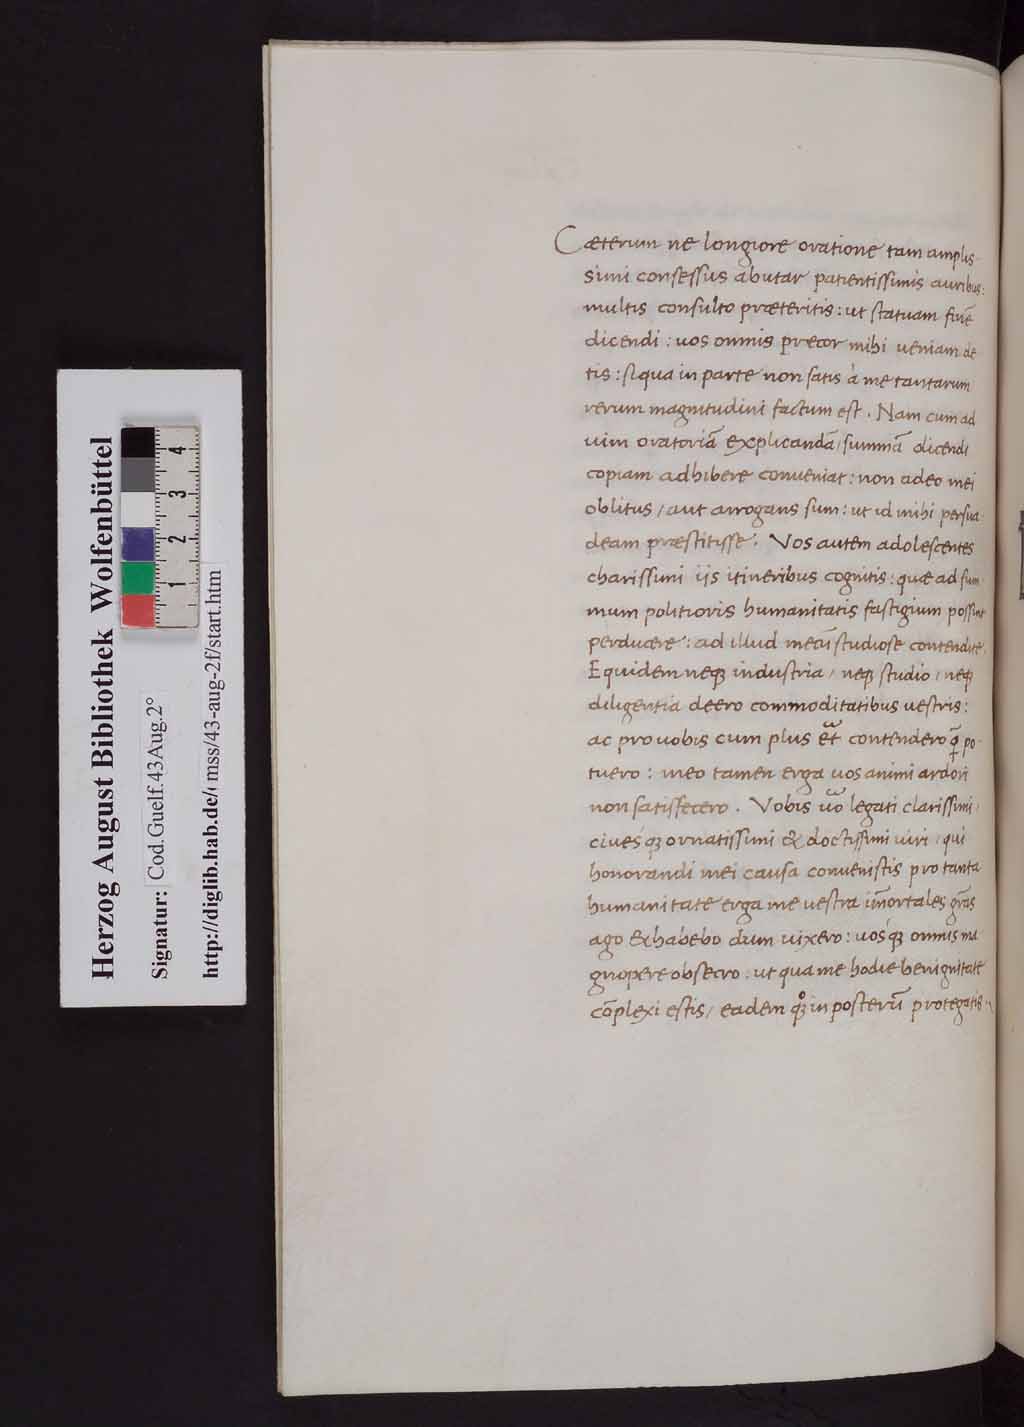 Cæterum ne longiore oratione tam amplis-
simi consessus abutar patientissimis auribus:
multis consulto præteritis: ut statuam finē
dicendi: uos omnis precor mihi ueniam de
tis: siqua in parte non satis à me tantarum
rerum magnitudini factum est. Nam cum ad
uim oratoriā explicandā/ summā dicendi
copiam adhibere conueniat: non adeo mei
oblitus/ aut arrogans sum: ut id mihi persua-
deam præstitisse. Vos autem adolescentes
charissimi iis itineribus cognitis: quæ ad sum
mum politioris humanitatis fastigium possint
perducere: ad illud mecū studiose contendite.
Equidem neqꝫ industria/ neqꝫ studio/ neqꝫ
diligentia deero commoditatibus uestris:
ac pro uobis cum plus et̃ contendero q̄ po-
tuero: meo tamen erga uos animi ardori
non satisfecero. Vobis uõ legati clarissimi,
ciuesqꝫ ornatissimi & doctissimi uiri, qui
honorandi mei causa conuenistis pro tanta
humanitate erga me uestra īmortales grās
ago & habebo dum uixero: uosqꝫ omnis ma
gnopere obsecro: ut qua me hodie benignitate
cōplexi estis/ eadem qꝫͦ in posterū protegatis.
Herzog August Bibliothek Wolfenbüttel
Signatur: Cod.Guelf.43Aug.2°
http://diglib.hab.de/ mss/43-aug-2f/start.htm
1 2 3 4